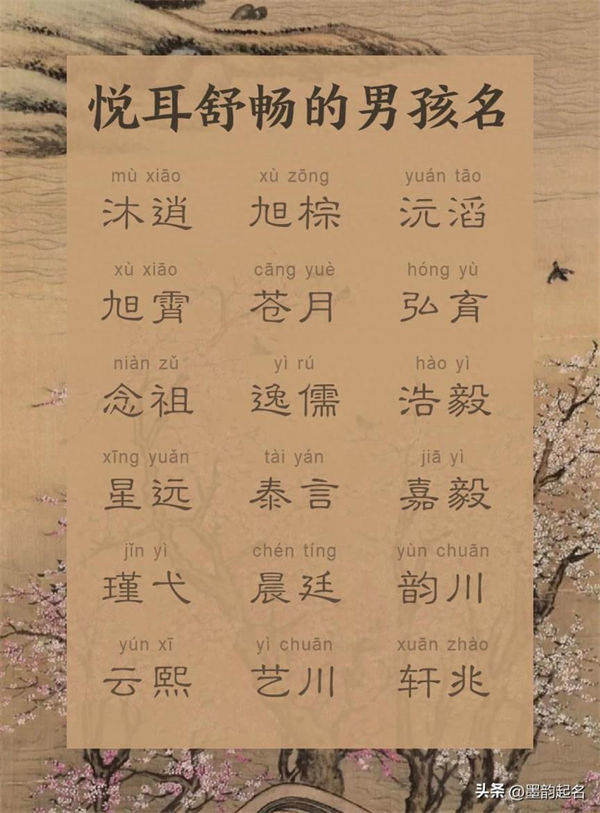 悦耳舒畅的男孩名
mù xiāo xù zōng yuán tāo
沐逍 旭棕 沅滔
xù xiāo cāng yuè hóng yù
旭霄 苍月 弘育
niàn zǔ yì rú hào yì
念祖 逸儒 浩毅
xīng yuǎn tài yán jiā yì
星远 泰言 嘉毅
jǐn yì chén tíng yùn chuān
瑾弋 晨廷 韵川
yún xī yì chuān xuān zhào
云熙 艺川 轩兆
头条 @墨韵起名